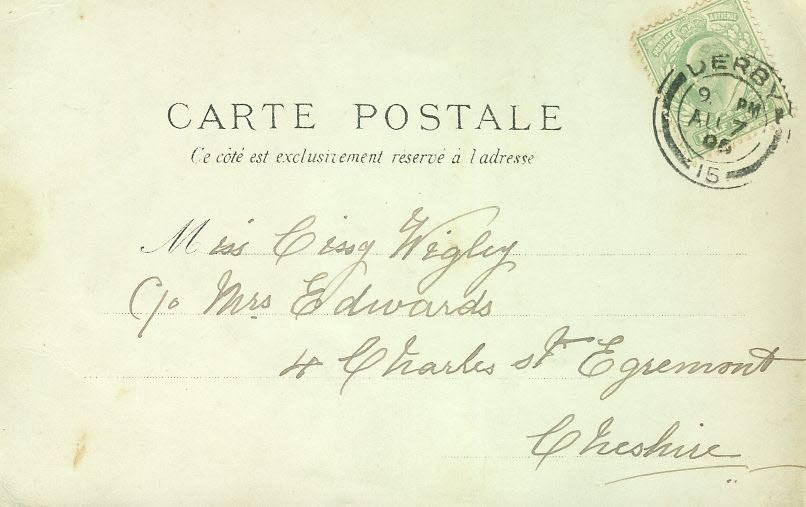 POSTAGE & REVENUE
DERBY
9. PM
AU 7
15
CARTE POSTALE
Ce côté est exclusivement réservé à l'adresse
Miss Cissy Wigley
C/o Mrs Edwards
4 Charles St Egremont
Cheshire